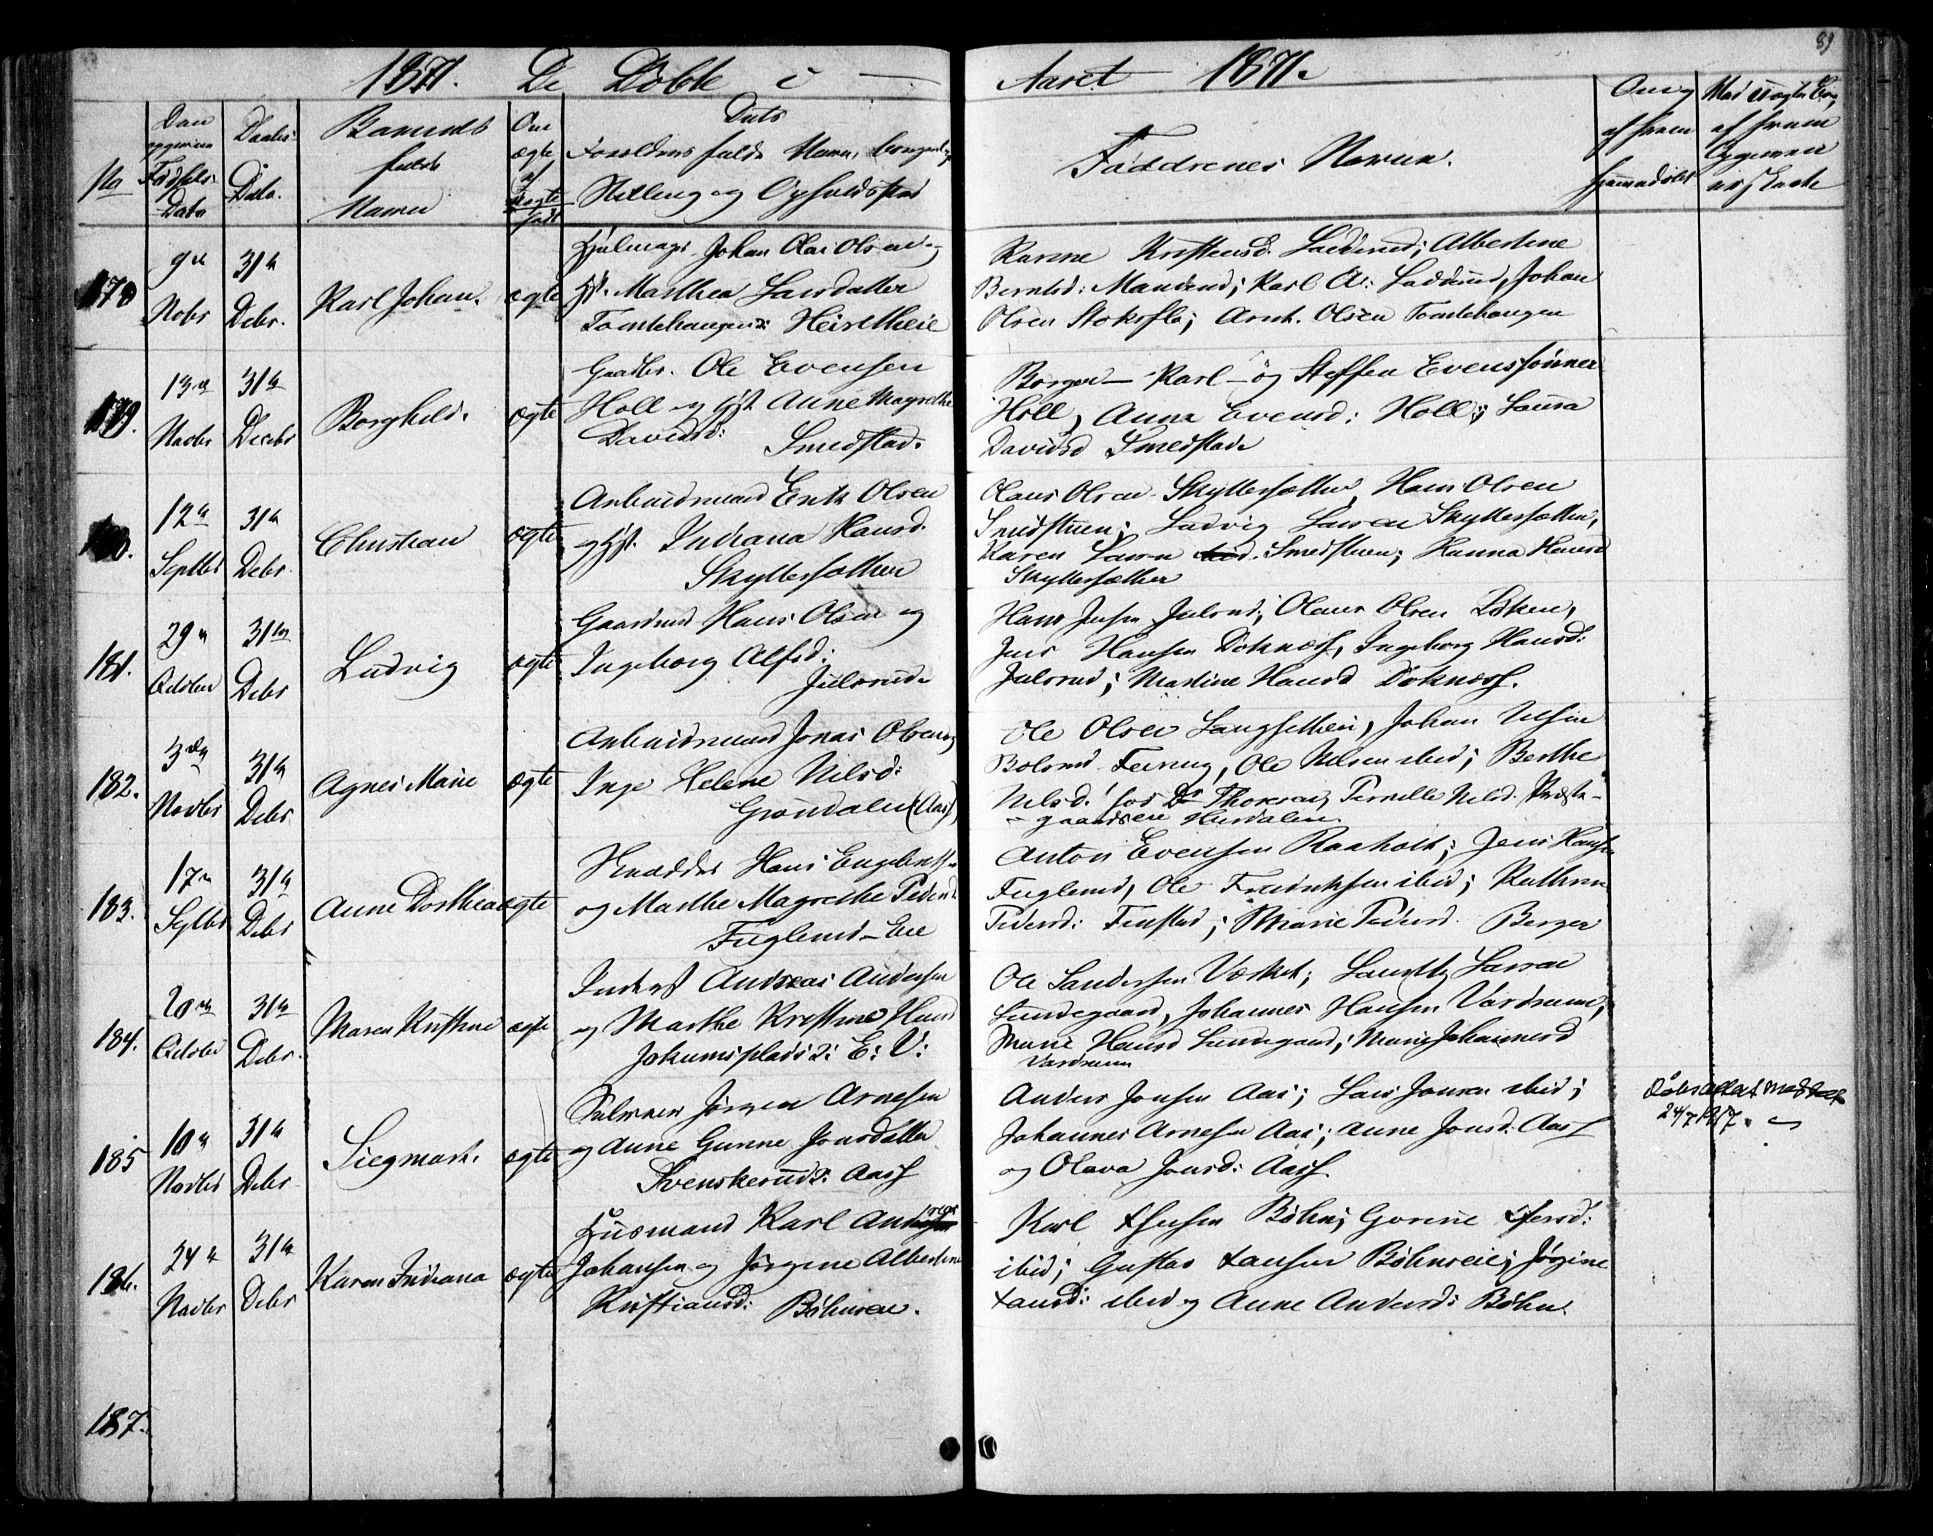 89
1871. De Døbte i — Aaret 1871.
No
Fødsels
Dato
Daabs-
Dato.
Barnets
fulde
Navn
Om
ægte
Dets
Forældres fulde Navn, borgerlig
Stilling og Opholdssted
Faddrenes Navne.
Om
af hvem
hjemmedøbt
af hvem
178
9de
Novbr
31te
Debr.
Karl Johan.
ægte
Johan Olai Olsen og
Hst. Marthea Larsdatter
Karine Kristensd. Ladderud; Albertine
Berntsd: Karl A: Ladderud, Johan
Olsen Stoksflø; Arnt. Olsen Tomtehaugen
179.
13de
Novbr
31te
Decbr
Borghild.
ægte
Gaardbr. Ole Evensen
Holl og Hst. Anne Magrethe
Davidsd:
Smedstad.
Borger— Karl— og Steffen Evenssønner
Holl, Anna Evensd: Holl; Laura
Davidsd Smedstad.
180.
12te
Septbr
31te
Debr.
Christian
ægte
Arbeidsmand Erik Olsen
og Hst. Indiana Hansd.
Skyttersæther
Olaus Olsen Skyttersæther, Hans Olsen
Smedstuen; Ludvig Larsen Skyttersæther,
Karen Smedstuen; Hanna Hansd
Skyttersæther
181.
29de
October
31te
Debr
Ludvig
ægte
Gaardmd Hans Olsen og
Ingeborg Alfsd:
Julsrud.
Hans Jensen Julsrud; Olaus Olsen Løken,
Jens Hansen Doknæss, Ingeborg Hansd:
Julsrud; Martine Hansd Doknæss.
182.
3die
Novbr
31te
Debr
Agnes Marie
ægte
Arbeidsmand Jonas Olsen og
Inge Helene Nilsd:
Grøndalen (Aas)
Ole Olsen Langsetheie, Johan Nilsen
Ole Nilsen ibid; Berthe
Nilsd: hos Dr Thoresen, Pernelle Nilsd. Præste-
gaardseie Hurdalen.
183.
17de
Septbr
31te
Debr
Anne Dorthea
ægte
Skrædder Hans Engebretsen
og Marthe Magrethe Pedersd
Fuglerud-Eie
Anton Evensen Raaholt; Jens Hansen
Fuglerud, Ole Fredriksen ibid; Kathrine
Pedersd: Finstad; Marie Pedersd. Berger
184.
20de
October
31te
Debr.
Maren Kristine
ægte
Inderst Andreas Andersen
og Marthe Kristine Hansd
Johannisplads: E: V:
Ole Sandersen Værket; Lauritz Larsen
Sundegaard, Johannes Hansen Vardrum,
Marie Hansd Sundegaard; Marie Johannesd
Vardrum
185
10de
Novbr
31te
Debr
Siegmart.
ægte
Jørgen Arnesen
og Anne Gunne Jonsdatter
Svenskerud: Aass
Anders Jonsen Aas; Lars Jonsen ibid;
Johannes Arnesen Aas; Anne Jonsd. Aass
og Olava Jonsd: Aass.
Døbsattest
24/7 1917.
186.
24de
Novbr
31te
Debr
Karen Indiana
ægte
Husmand Karl
Johansen og Jørgine Albertine
Kristiansd: Bøhnseie.
Karl Bøhn; Gorine
ibid; Gustav Hansen Bøhnseie; Jørgine
Hansd: ibid og Anne Andersd: Bøhn.
187.